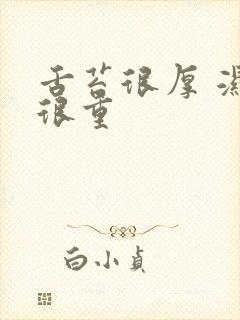 舌苔很厚 湿
很重
白小贞